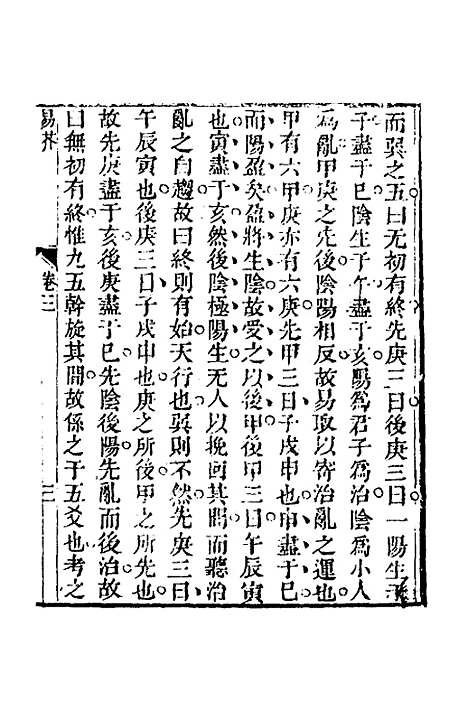 而巽之五曰无初有終先庚三日後庚三日一陽生于
子盡于巳陰生于午盡于亥陽爲君子爲治陰爲小人
爲亂甲庚之先後陰陽相反故易取以寄治亂之運也
甲有六甲庚亦有六庚先甲三日子戌申也申盡于巳
而陽盈矣盈將生陰故受之以後甲後甲三日午辰寅
也寅盡于亥然後陰極陽生无人以挽囘其間而聽治
亂之自趨故曰終則有始天行也巽則不然先庚三日
午辰寅也後庚三日子戌申也庚之所後甲之所先也
故先庚盡于亥後庚盡于巳先陰後陽先亂而後治故
曰無初有終惟九五幹旋其間故係之于五爻也考之
易芥
卷三
三